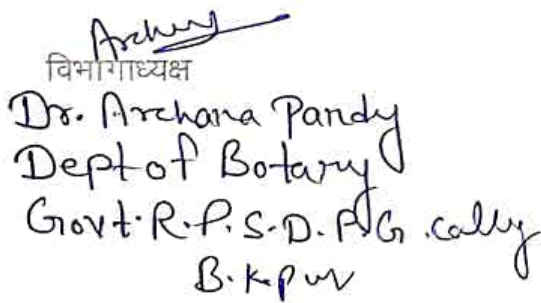 Archana
विभागाध्यक्ष
Dr. Archana Pandy
Dept of Botany
Govt. R.P.S.D. P.G. Colly
B.K.pur